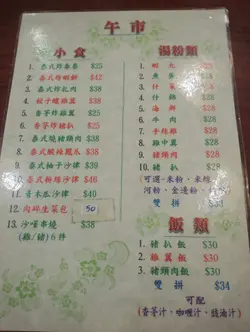 午市
小食
1. 泰式炸春卷 $25
2. 泰式炸蝦餅 $42
3. 泰式炸扎肉 $38
4. 椒子雞翼 $38
5. 香茅炸雞翼 $25
6. 香茅炸豬扒 $25
7. 泰式燒豬頸肉 $38
8. 泰式酸辣鳳爪 $38
9. 泰式柚子沙律 $38
10. 泰式粉絲沙律 $38
11. 青木瓜沙律 $40
12. 肉碎生菜包 50
13. 沙嗲串燒 $38
(雞/豬)6件
湯粉類
1. 蝦丸 $28
2. 魚蛋 $28
3. 什菜 $28
4. 什錦 $28
5. 海鮮 $28
6. 牛肉 $28
7. 手絲雞 $28
8. 雞中翼 $28
9. 豬頸肉 $28
10. 豬扒 $28
(可選:米粉、米線
河粉、金邊粉、
雙拼 $33
飯類
1. 豬扒飯 $30
2. 雞翼飯 $30
3. 豬頸肉飯 $30
雙拼 $34
可配
(香茅汁、咖喱汁、豉油汁)